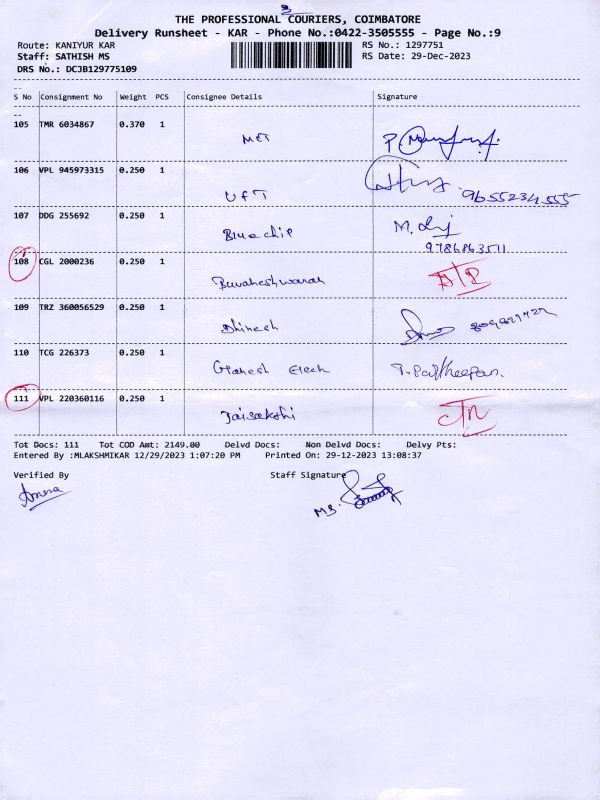 3
THE PROFESSIONAL COURIERS, COIMBATORE
Delivery Runsheet - KAR - Phone No.:0422-3505555 - Page No.:9
Route: KANIYUR KAR RS No.: 1297751
Staff: SATHISH MS RS Date: 29-Dec-2023
DRS No.: DCJB129775109
S No Consignment No Weight PCS Consignee Details Signature
105 TMR 6034867 0.370 1
MET
106 VPL 945973315 0.250 1
UFT 9655234555
107 DDG 255692 0.250 1
Bluechip M.
9786863511
108 CGL 2000236 0.250 1
Buvaneshwaran
109 TRZ 360056529 0.250 1
Dhinesh
110 TCG 226373 0.250 1
Mahesh Elech
111 VPL 220360116 0.250 1
Jaisakshi
Tot Docs: 111 Tot COD Amt: 2149.00 Delvd Docs: Non Delvd Docs: Delvy Pts:
Entered By :MLAKSHMIKAR 12/29/2023 1:07:20 PM Printed On: 29-12-2023 13:08:37
Verified By Staff Signature
MS.